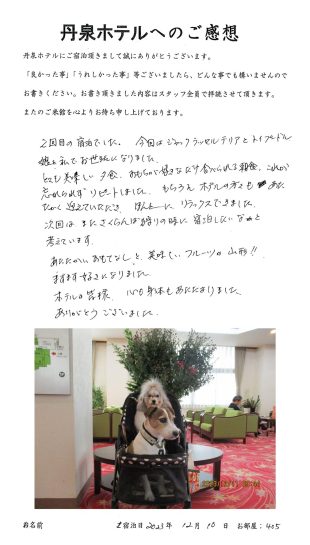 丹泉ホテルへのご感想
丹泉ホテルにご宿泊頂きまして誠にありがとうございます。
「良かった事」「うれしかった事」等ございましたら、どんな事でも構いませんので
お書きください。お書き頂きました内容はスタッフ全員で拝読させて頂きます。
またのご来館を心よりお待ち申し上げております。
2回目の宿泊でした。今回はジャックラッセルテリアとトイプードル
と私でお世話になりました。
とても美味しい夕食、好きなだけ食べられる朝食、これが
忘れられずリピートしました。もちろん ホテルの方も あた
たかく迎えていただき、ほんとーに リラックスできました。
次回は またさくらんぼ狩りの時に 宿泊したいなぁと
考えています。
あたたかいおもてなしと、美味しいフルーツの山形!!
ますます好きになりました。
ホテルの皆様、心も身体もあたたまりました。
ありがとうございました。
お名前 宿泊日 2023年 12月 10日 お部屋:405